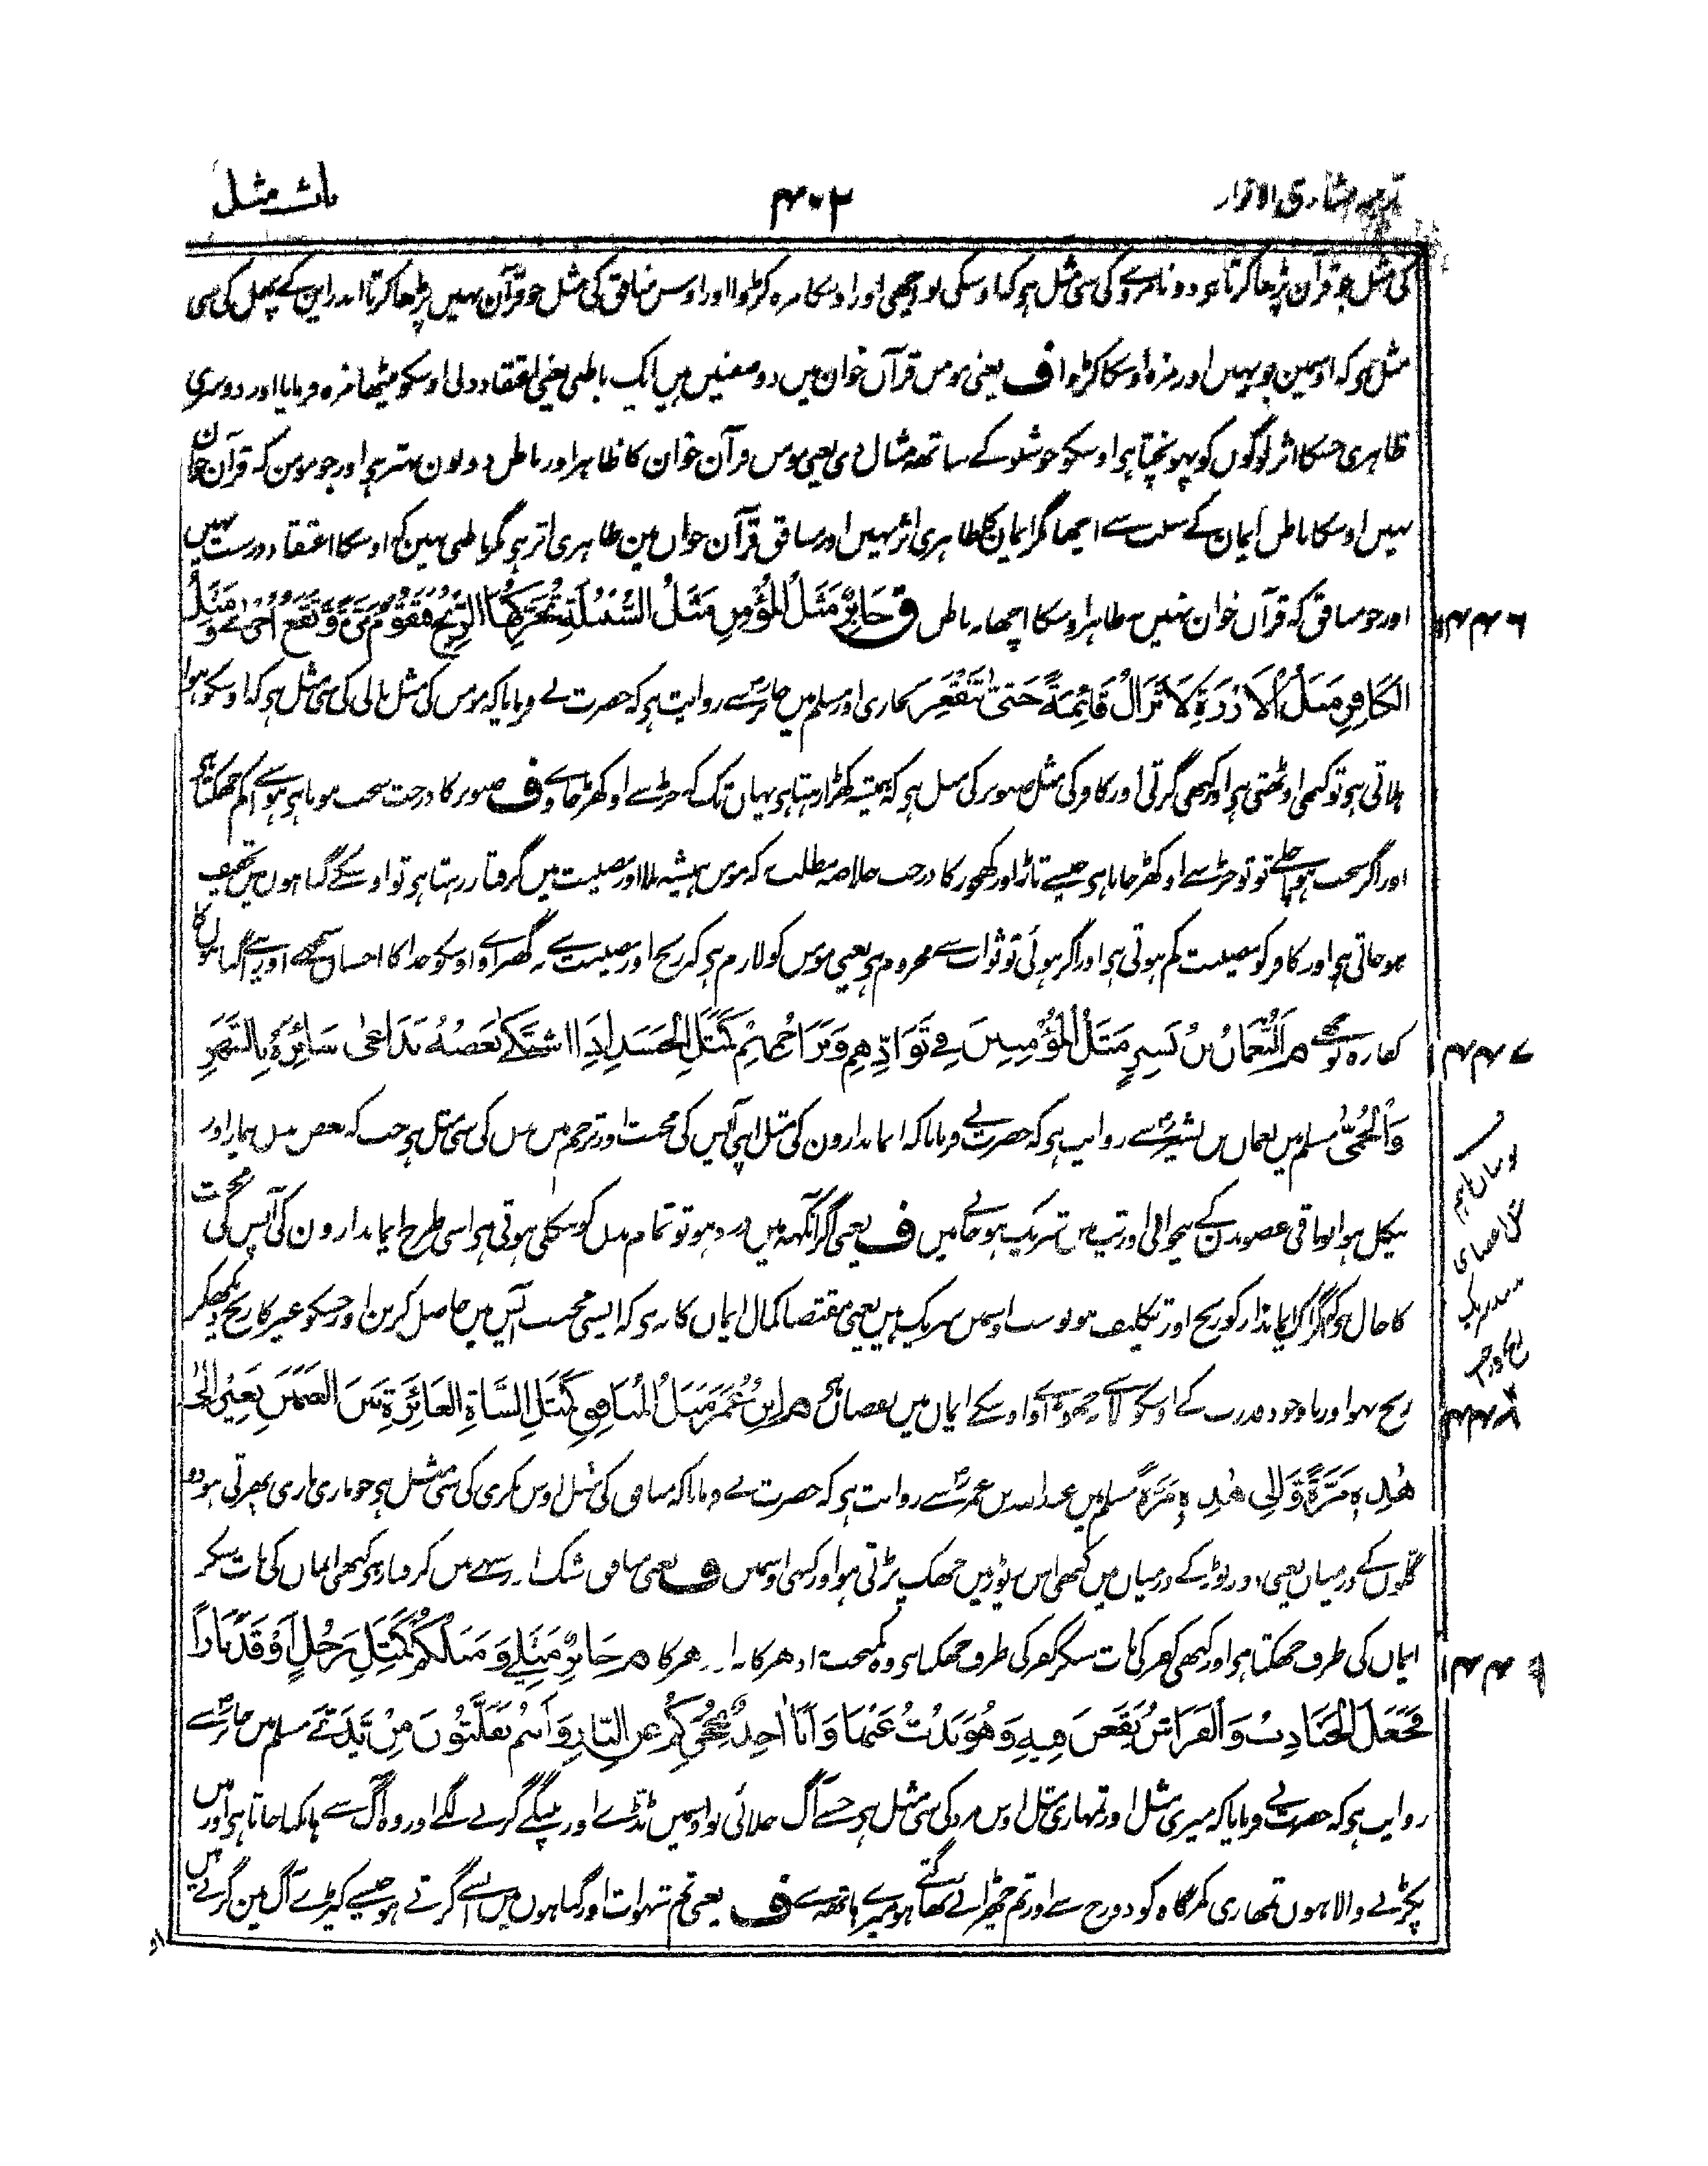 ترجمہ مشارق الانوار
۴۰۲
باب مثل
کی مثل جو قرآن پڑھا کرتا ہو دونا مروے کی سی مثل ہو کہ اوسکی بو اچھی اور اوسکا مزہ کڑوا اور اوس منافق کی مثل جو قرآن نہیں پڑھا کرتا اندراین کے پھل کی سی
مثل ہو کہ اوسمین بو نہیں اور مزہ اوسکا کڑوا ف یعنی مومن قرآن خوان میں دو صفتیں ہیں ایک باطنی یعنی اعتقاد دلی اوسکو میٹھا مزہ فرمایا اور دوسری
ظاہری جسکا اثر لوگوں کو پہونچتا ہو اوسکو خوشبو کے ساتھ مثال دی یعنی مومن قرآن خوان کا ظاہر اور باطن دونون بہتر ہو اور جو مومن کہ قرآن خوان
نہیں اوسکا باطن ایمان کے سبب سے اچھا مگر ایمان کا ظاہری اثر نہیں اور منافق قرآن خوان مین ظاہری اثر ہو مگر باطنی نہین کہ اوسکا اعتقاد درست نہیں
اور جو منافق کہ قرآن خوان نہیں نہ ظاہر اوسکا اچھا نہ باطن ق جَابِرٌ مَثَلُ الْمُؤْمِنِ مَثَلُ السُّنْبُلَةِ تُحَرِّكُهَا الرِّيْحُ فَتَقُوْمُ مَرَّةً وَّتَقَعُ اُخْرٰى وَمَثَلُ
۱۴۴۶
الْكَافِرِ مَثَلُ الْاَرْزَةِ لَا تَزَالُ قَائِمَةً حَتّٰى تَنْقَعِرَ بخاری اور مسلم میں جابرؓ سے روایت ہو کہ حضرت نے فرمایا کہ مومن کی مثل بالی کی سی مثل ہو کہ اوسکو ہوا
ہلاتی ہو تو کبھی اوٹھتی ہو اور کبھی گرتی اور کافر کی مثل صنوبر کی مثل ہو کہ ہمیشہ کھڑا رہتا ہو یہاں تک کہ جڑ سے اوکھڑ جاوے ف صنوبر کا درخت سخت ہوتا ہو ہوا سے کم جھکتا ہو
اور اگر سخت ہوا چلے تو جڑ سے اوکھڑ جاتا ہو جیسے تاڑ اور کھجور کا درخت خلاصہ مطلب کہ مومن ہمیشہ بلا اور مصیبت میں گرفتار رہتا ہو تو اوسکے گناہوں میں تخفیف
ہو جاتی ہو اور کافر کو مصیبت کم ہوتی ہو اور اگر ہوئی تو ثواب سے محروم ہو یعنی مومن کو لازم ہو کہ رنج اور مصیبت سے نہ گھبراوے اوسکو خدا کا احسان سمجھے اور اپنے گناہوں کا
کفارہ بوجھے م اَلنُّعْمَانُ بْنُ بَشِيْرٍ مَثَلُ الْمُؤْمِنِيْنَ فِيْ تَوَادِّهِمْ وَتَرَاحُمِهِمْ كَمَثَلِ الْجَسَدِ اِذَا اشْتَكٰى بَعْضُهُ تَدَاعٰى سَائِرُهُ بِالسَّهَرِ
۱۴۴۷
وَالْحُمّٰى مسلم میں نعمان بن بشیرؓ سے روایت ہو کہ حضرت نے فرمایا کہ ایماندارون کی مثل اپنی آپس کی محبت اور ترحم میں بدن کی سی مثل ہو جب کہ بعض بدن بیمار اور
بیکل ہوا تو باقی عضو بدن کے بیخوابی اور تپ میں شریک ہو جاتے ہیں ف یعنی اگر آنکھ میں درد ہو تو تمام بدن کو بیکلی ہوتی ہو اسی طرح ایماندارون کی آپس کی محبت
کا حال ہو کہ اگر ایک ایماندار کو رنج اور تکلیف ہو تو سب اوسمیں شریک ہیں یعنی مقتضا کمال ایمان کا یہ ہو کہ ایسی محبت آپس میں حاصل کرین اور جسکو غیر کا رنج دیکھکر
رنج نہو اور باوجود قدرت کے اوسکو بلا سے نہ چھوڑاوے تو اوسکے ایمان میں نقصان ہو م اِبْنُ عُمَرَ مَثَلُ الْمُنَافِقِ كَمَثَلِ الشَّاةِ الْعَائِرَةِ بَيْنَ الْغَنَمَيْنِ تَعِيْرُ اِلٰى
هٰذِهٖ مَرَّةً وَّاِلٰى هٰذِهٖ مَرَّةً مسلم میں عبداللہ بن عمرؓ سے روایت ہو کہ حضرت نے فرمایا کہ منافق کی مثل اوس بکری کی سی مثل ہو جو ماری ماری پھرتی ہو دو
گلوں کے درمیان یعنی دو ریوڑ کے درمیان میں کبھی اس ریوڑ میں جھک پڑتی ہو اور کبھی اوسمیں ف یعنی منافق شک میں گرفتار ہو کبھی ایمان کی بات سنکر
ایمان کی طرف جھکتا ہو اور کبھی کفر کی بات سنکر کفر کی طرف جھکتا ہو وہ کمبخت ادھر کا نہ اودھر کا م جَابِرٌ مَثَلِيْ وَمَثَلُكُمْ كَمَثَلِ رَجُلٍ اَوْقَدَ نَارًا
فَجَعَلَ الْجَنَادِبُ وَالْفَرَاشُ يَقَعْنَ فِيْهِ وَهُوَ يَذُبُّ عَنْهَا وَاَنَا اٰخِذٌ بِحُجَزِكُمْ عَنِ النَّارِ وَاَنْتُمْ تَفَلَّتُوْنَ مِنْ يَّدَيَّ مسلم میں جابرؓ سے
روایت ہو کہ حضرت نے فرمایا کہ میری مثل اور تمہاری مثل اوس مرد کی سی مثل ہو جسنے آگ جلائی تو اوسمیں ٹڈے اور پتنگے گرنے لگے اور وہ آگ سے ہانکتا جاتا ہو اور میں
پکڑنے والا ہوں تمھاری کمرگاہ کو دوزخ سے اور تم چھڑائے بھاگتے ہو میرے ہاتھ سے ف یعنی تم شہوات اور گناہوں میں ایسے گرتے ہو جیسے کیڑے آگ مین گرتے ہیں